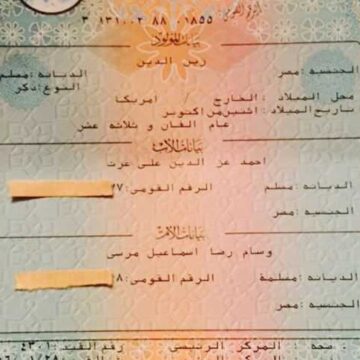 الرقم القومى
٣ ١٣١٠٠٣ ٨٨ ٠١٨٥٥
بيانات المولود
زين الدين
الجنسية :مصر الديانة :مسلم
النوع :ذكر
محل الميلاد : الخارج / أمريكا
تاريخ الميلاد :اثنين من أكتوبر
عام الفان و ثلاثة عشر
بيانات الأب
احمد عز الدين على عزت
الديانة :مسلم الرقم القومى :٢٧
الجنسية :مصر
بيانات الأم
وسام رضا اسماعيل مرسى
الديانة :مسلمة الرقم القومى :٢٨
الجنسية :مصر
صحة : المركز الرئيسي رقم القيد :٤٣٠١